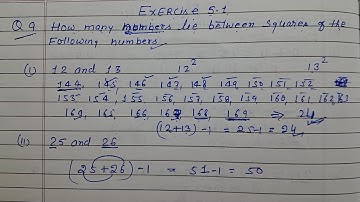 EXERCISE 5.1
Q9 How many numbers lie between squares of the
Following numbers
(i) 12 and 13 12² 13²
144, 145, 146, 147, 148, 149, 150, 151, 152
153, 154, 155, 156, 157, 158, 159, 160, 161, 162, 163
165, 166, 168, 169 ⇒ 24
(12+13)-1 = 25-1 = 24
(ii) 25 and 26
(25+26)-1 = 51-1 = 50